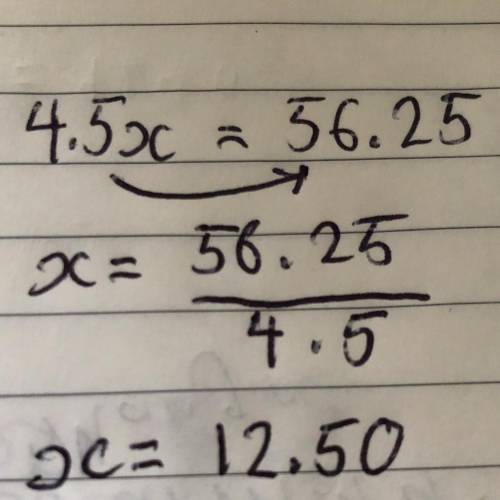 4.5x = 56.25
x = 56.25
4.5
x = 12.50